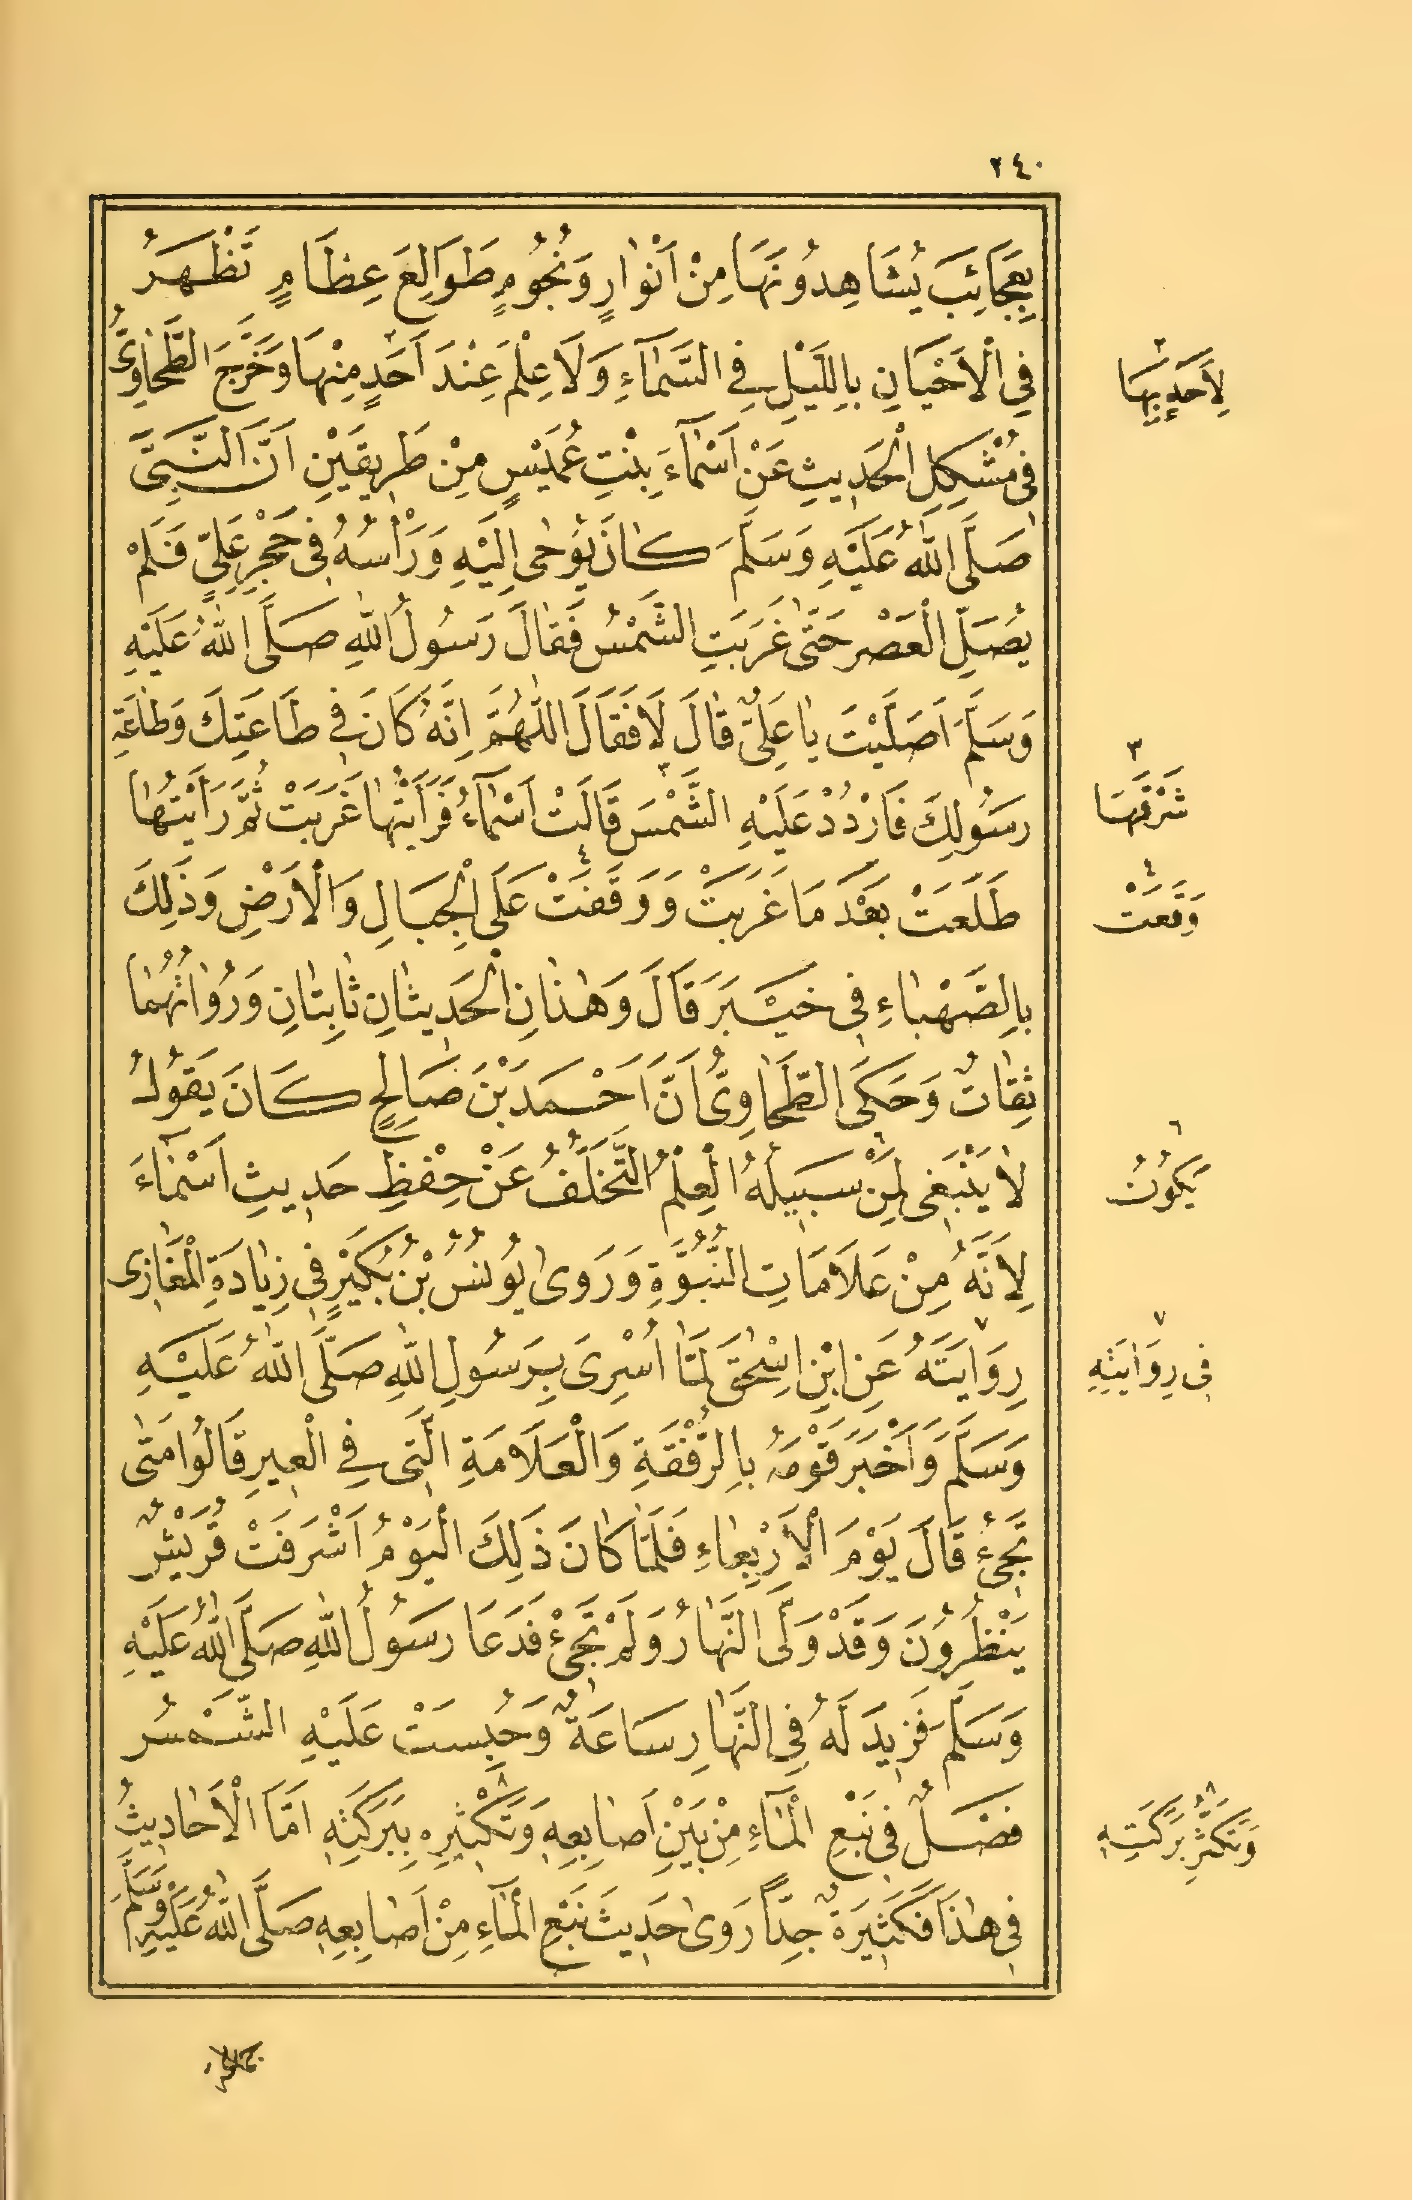 ٢٤٠
بِعَجَائِبَ يُشَاهِدُونَهَا مِنْ اَنْوَارٍ وَنُجُومٍ طَوَالِعَ عِظَامٍ تَظْهَرُ
فِي الْاَحْيَانِ بِاللَّيْلِ فِي السَّمَآءِ وَلَا عِلْمَ عِنْدَ اَحَدٍ مِنْهَا وَخَرَّجَ الطَّحَاوِيُّ
فِي مُشْكِلِ الْحَدِيثِ عَنْ اَسْمَآءَ بِنْتِ عُمَيْسٍ مِنْ طَرِيقَيْنِ اَنَّ النَّبِيَّ
صَلَّى اللهُ عَلَيْهِ وَسَلَّمَ كَانَ يُوحٰى اِلَيْهِ وَرَأْسُهُ فِي حَجْرِ عَلِيٍّ فَلَمْ
يُصَلِّ الْعَصْرَ حَتّٰى غَرَبَتِ الشَّمْسُ فَقَالَ رَسُولُ اللهِ صَلَّى اللهُ عَلَيْهِ
وَسَلَّمَ اَصَلَّيْتَ يَا عَلِيُّ قَالَ لَا فَقَالَ اللّٰهُمَّ اِنَّهُ كَانَ فِي طَاعَتِكَ وَطَاعَةِ
رَسُولِكَ فَارْدُدْ عَلَيْهِ الشَّمْسَ ٣ قَالَتْ اَسْمَآءُ فَرَاَيْتُهَا غَرَبَتْ ثُمَّ رَاَيْتُهَا
طَلَعَتْ بَعْدَ مَا غَرَبَتْ وَوَقَفَتْ ٤ عَلَى الْجِبَالِ وَالْاَرْضِ وَذٰلِكَ
بِالصَّهْبَاءِ فِي خَيْبَرَ قَالَ وَهٰذَانِ الْحَدِيثَانِ ثَابِتَانِ وَرُوَاتُهُمَا
ثِقَاتٌ وَحَكَى الطَّحَاوِيُّ اَنَّ اَحْمَدَ بْنَ صَالِحٍ كَانَ يَقُولُ
لَا يَنْبَغِي لِمَنْ ٦ سَبِيلُهُ الْعِلْمُ التَّخَلُّفُ عَنْ حِفْظِ حَدِيثِ اَسْمَآءَ
لِاَنَّهُ مِنْ عَلَامَاتِ النُّبُوَّةِ وَرَوٰى يُونُسُ بْنُ بُكَيْرٍ فِي زِيَادَةِ الْمَغَازِي
رِوَايَتَهُ ٧ عَنِ ابْنِ اِسْحٰقَ لَمَّا اُسْرِيَ بِرَسُولِ اللهِ صَلَّى اللهُ عَلَيْهِ
وَسَلَّمَ وَاَخْبَرَ قَوْمَهُ بِالرُّفْقَةِ وَالْعَلَامَةِ الَّتِي فِي الْعِيرِ قَالُوا مَتٰى
تَجِيءُ قَالَ يَوْمَ الْاَرْبِعَاءِ فَلَمَّا كَانَ ذٰلِكَ الْيَوْمُ اَشْرَفَتْ قُرَيْشٌ
يَنْظُرُونَ وَقَدْ وَلَّى النَّهَارُ وَلَمْ تَجِئْ فَدَعَا رَسُولُ اللهِ صَلَّى اللهُ عَلَيْهِ
وَسَلَّمَ فَزِيدَ لَهُ فِي النَّهَارِ سَاعَةٌ وَحُبِسَتْ عَلَيْهِ الشَّمْسُ
فَصْلٌ فِي نَبْعِ الْمَآءِ مِنْ بَيْنِ اَصَابِعِهِ وَتَكْثِيرِهِ ٨ بِبَرَكَتِهِ اَمَّا الْاَحَادِيثُ
فِي هٰذَا فَكَثِيرَةٌ جِدًّا رَوٰى حَدِيثَ نَبْعِ الْمَآءِ مِنْ اَصَابِعِهِ صَلَّى اللهُ عَلَيْهِ وَسَلَّمَ
٢
لِاَحَدٍ بِهَا
٣
شَرْقَهَا
٤
وَقَعَتْ
٦
يَكُونُ
٧
فِي رِوَايَتِهِ
٨
وَتَكَثُّرِ بَرَكَتِهِ